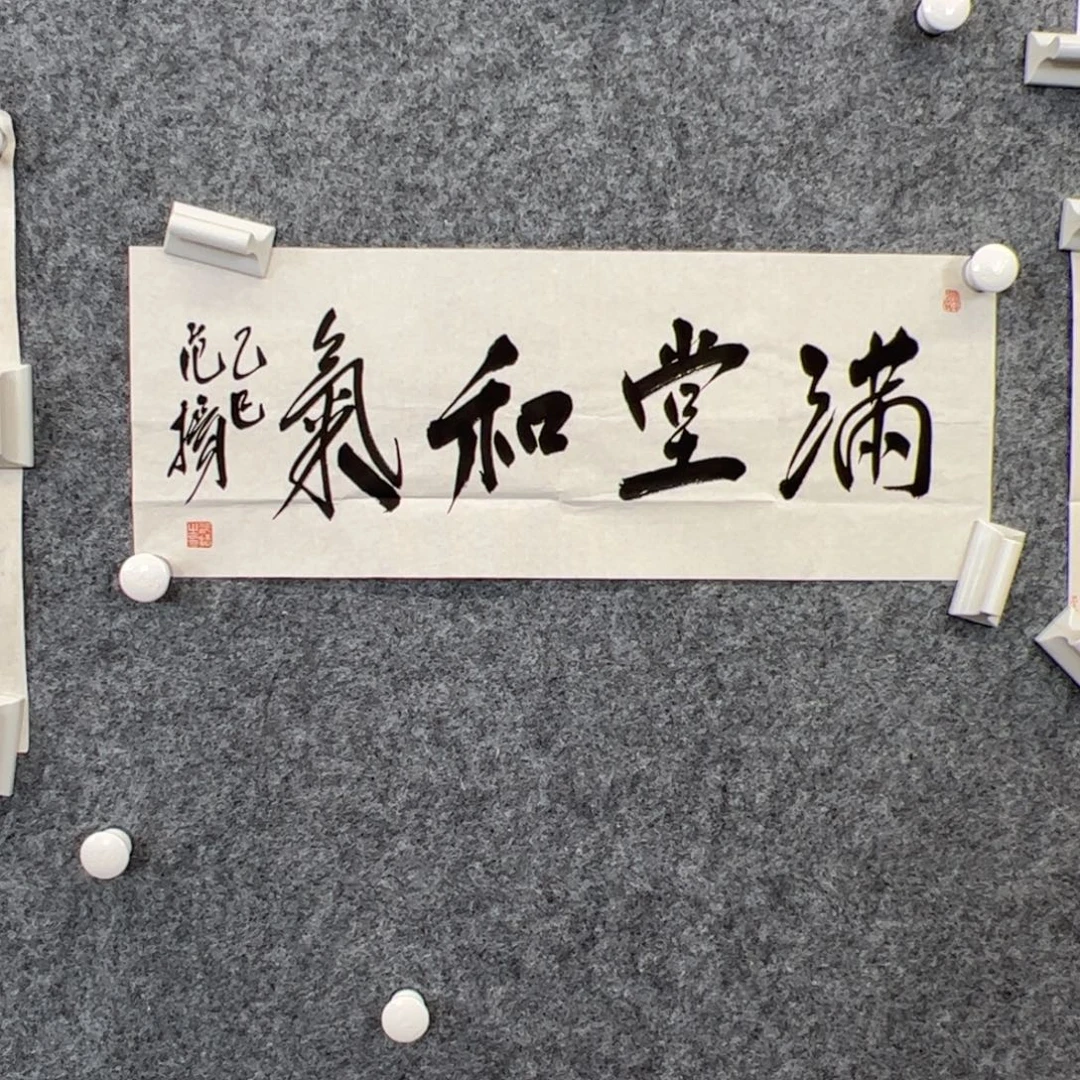 滿堂和氣
乙巳
范